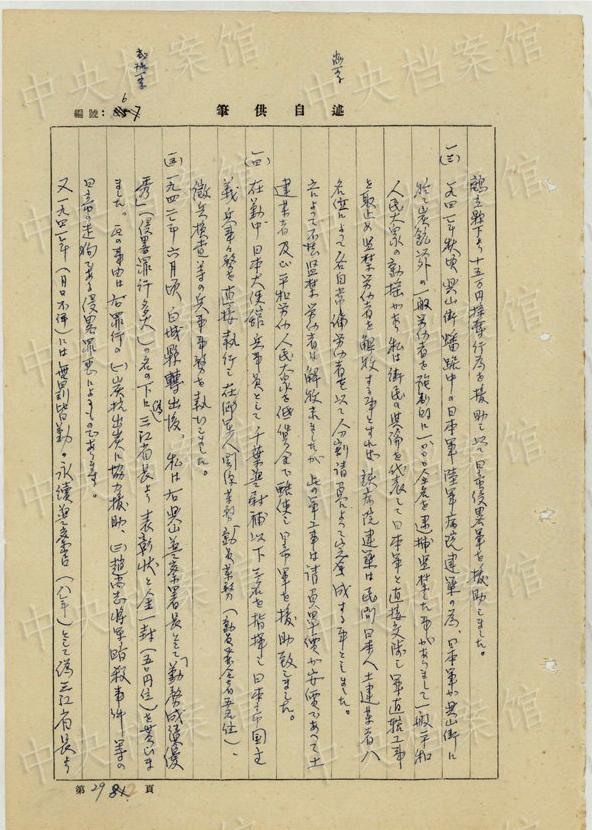 述自供筆
編號:
鶴立縣下より十五万円搾奪行為を援助し以て日帝侵畧軍を援助しました。
(三) 一九四一年秋頃興山街蟠踞中の日本軍陸軍病院建築の為、日本軍が興山街に
於て炭鉱以外の一般労働者を強制的に一〇〇余名を逮捕監禁した事がありまして一般平和
人民大衆の動揺があり私は街民の輿論を代表して日本軍と直接交渉し軍直轄工事
を取止め監禁労働者を解放する事とすれば該病院建築は民間日本人土建業者八
名位によって各自常傭労働者を以て分割請負によって完成する事としました。
之によって不法監禁労働者は解放しましたが此の軍工事は請負単價が安價であって土
建業者及び平和労働人民大衆を低賃金で酷使し日帝軍を援助致しました。
(四) 在勤中日本大使館兵事員として千葉警尉補以下三名を指揮し日本帝国主
義兵事々務を直接執行し在郷軍人関係業務、動員業務(動員該当者五〇名位)、
徴兵検査等の兵事事務を執りました。
(五) 一九四二年六月頃、白城縣轉出後、私は右興山警察署長として「勤務成績優
秀」(侵畧罪行多大)の名の下に三江省長より表彰状と金一封(五〇円位)を貰いま
ました。此の事由は右罪行の(一)炭坑出炭に協力援助(二)趙尚志将軍暗殺事件等の
日帝の走狗である侵畧罪悪によるものであります。
又一九四二年(月日不詳)には無罰皆勤の永續警察官(八年)として偽三江省長よ
中央档案馆
第29頁